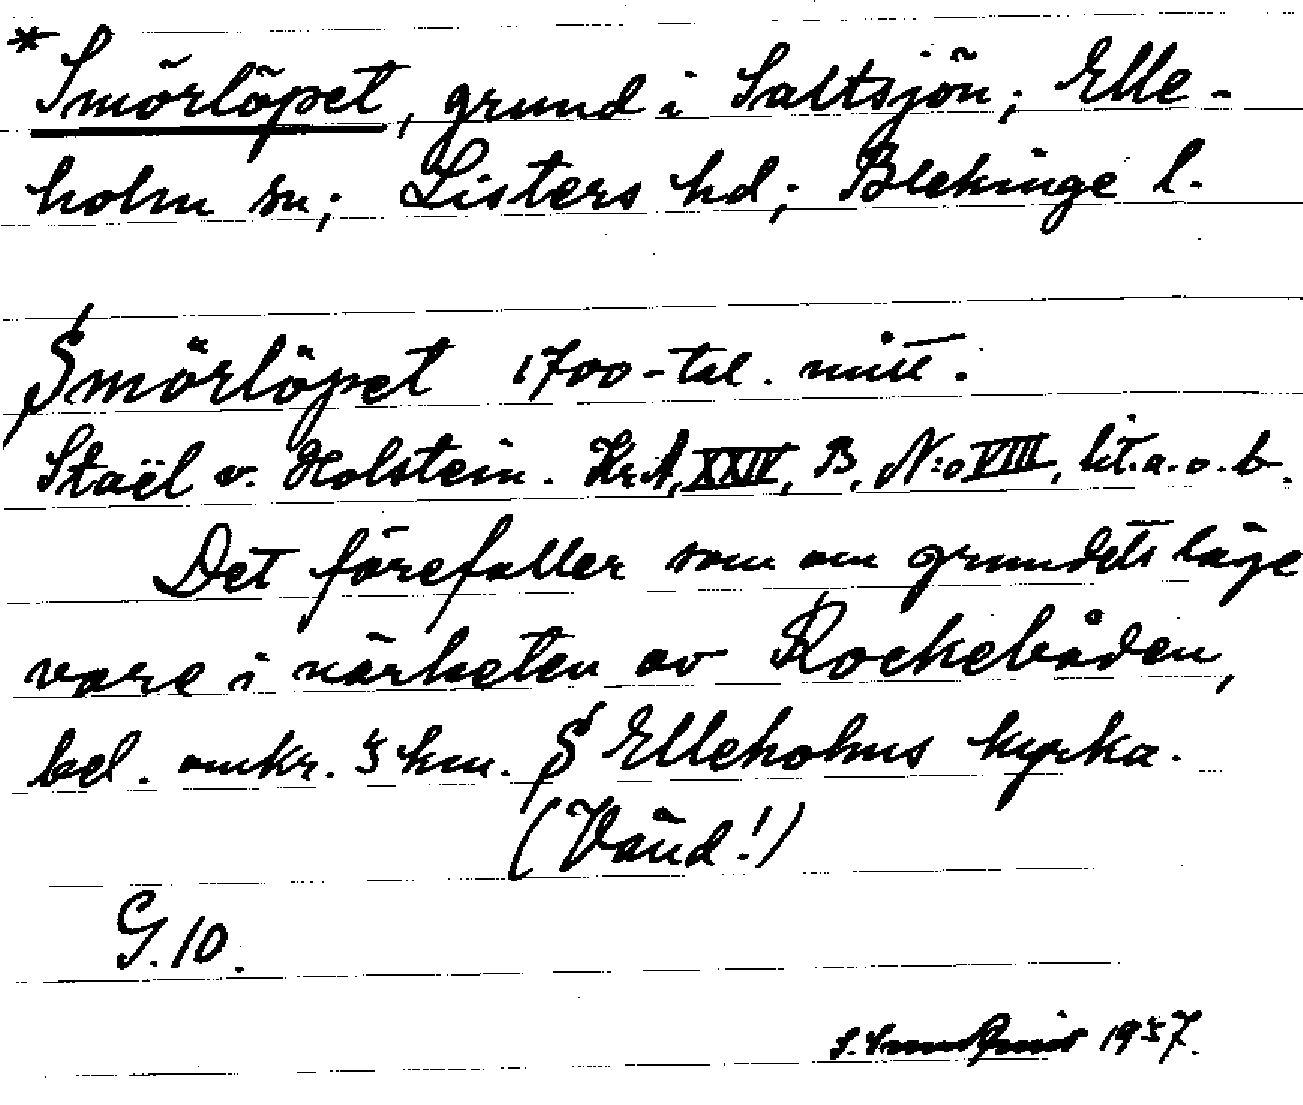 *Smörlöpet, grund i Saltsjön; Elle-
holm sn; Listers hd; Blekinge l.
Smörlöpet 1700-tal. mitt.
Staël v. Holstein. Kr.A, XXIV, B, N:o VIII, lit. a. o. b.
Det förefaller som om grundets läge
vore i närheten av Rockebåden,
bel. omkr. 5 km. S Elleholms kyrka.
(Vänd!)
G. 10.
1957.